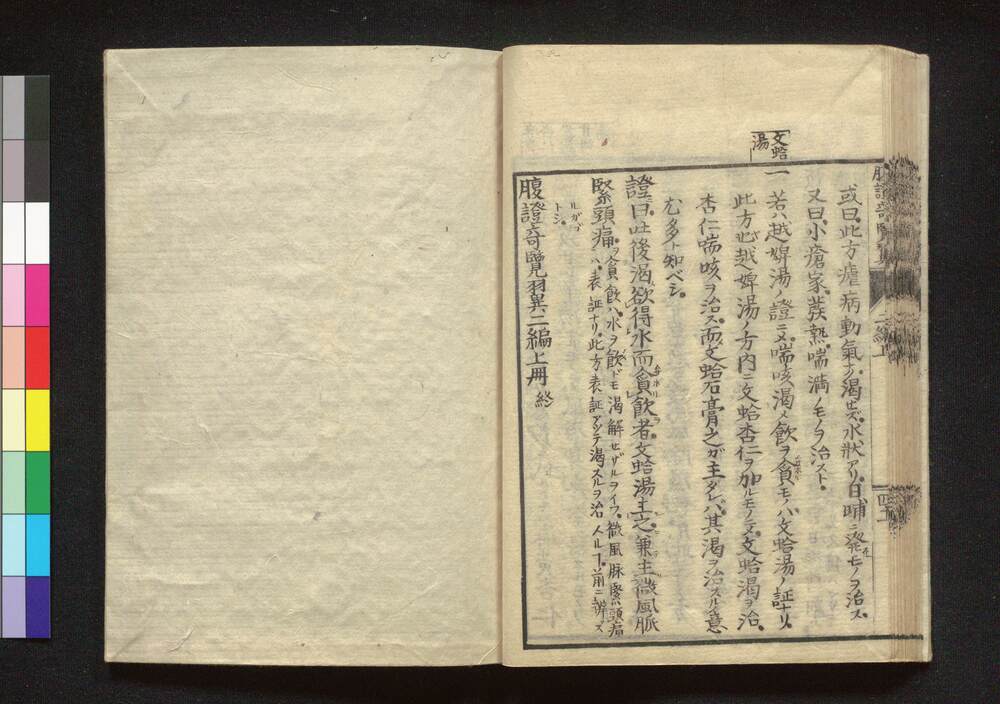 或曰此方瘧病動氣ナク渇セズ水狀アリ日晡ニ發モノヲ治ス
又曰小瘡家蒸熱喘滿ノモノヲ治スト
文蛤湯
一 若ハ越婢湯ノ證ニメ喘咳渇メ飲ヲ貪モノハ文蛤湯ノ証ナリ
此方也越婢湯ノ方内ニ文蛤杏仁ヲ加ルモノニメ文蛤渇ヲ治
杏仁喘咳ヲ治ス而メ文蛤石膏之ガ主タレバ其渇ヲ治スル意
ヒ多ト知ベシ
證曰吐後渇欲得水而貪飲者文蛤湯主之兼主微風脈
緊頭痛
貪飲ハ水ヲ飲ドモ渇解セザルヲイフ微風脉緊頭痛
ハ表証ナリ此方表証アツテ渇スルヲ治
ルガゴ
トシ
腹證奇覽翼二編上冊 終